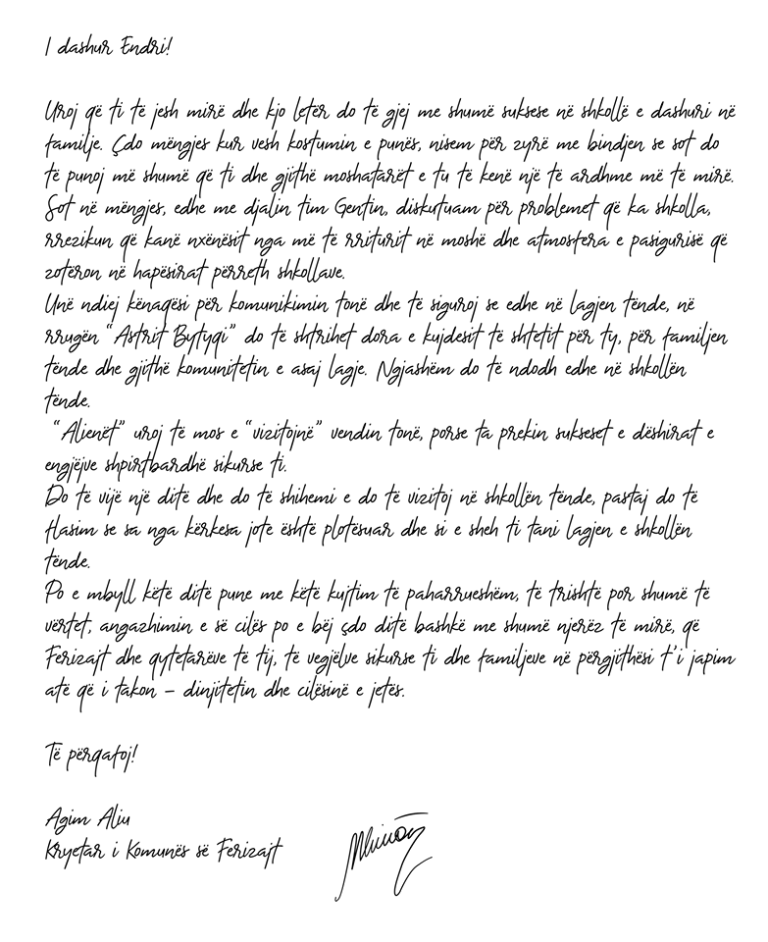 I dashur Endri!
Uroj që ti të jesh mirë dhe kjo letër do të gjej me shumë suksese në shkollë e dashuri në
familje. Çdo mëngjes kur vesh kostumin e punës, nisem për zyrë me bindjen se sot do
të punoj më shumë që ti dhe gjithë moshatarët e tu të kenë një të ardhme më të mirë.
Sot në mëngjes, edhe me djalin tim Gentin, diskutuam për problemet që ka shkolla,
rrezikun që kanë nxënësit nga më të rriturit në moshë dhe atmosfera e pasigurisë që
zotëron në hapësirat përreth shkollave.
Unë ndiej kënaqësi për komunikimin tonë dhe të siguroj se edhe në lagjen tënde, në
rrugën "Astrit Bytyqi" do të shtrihet dora e kujdesit të shtetit për ty, për familjen
tënde dhe gjithë komunitetin e asaj lagje. Ngjashëm do të ndodh edhe në shkollën
tënde.
"Alienët" uroj të mos e "vizitojnë" vendin tonë, porse ta prekin sukseset e dëshirat e
engjëjve shpirtbardhë sikurse ti.
Do të vijë një ditë dhe do të shihemi e do të vizitoj në shkollën tënde, pastaj do të
flasim se sa nga kërkesa jote është plotësuar dhe si e sheh ti tani lagjen e shkollën
tënde.
Po e mbyll këtë ditë pune me këtë kujtim të paharrueshëm, të trishtë por shumë të
vërtet, angazhimin e së cilës po e bëj çdo ditë bashkë me shumë njerëz të mirë, që
Ferizajt dhe qytetarëve të tij, të vegjëlve sikurse ti dhe familjeve në përgjithësi t'i japim
atë që i takon – dinjitetin dhe cilësinë e jetës.
Të përqafoj!
Agim Aliu
Kryetar i Komunës së Ferizajt